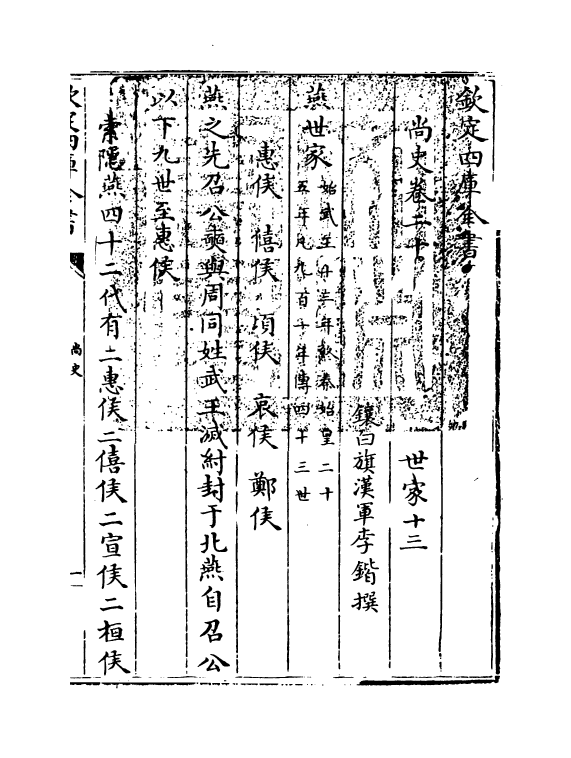 欽定四庫全書
尚史卷二十 世家十三
鑲白旗漢軍李鍇撰
燕世家 始武王十三年終秦始皇二十
五年凡九百十年傳四十三世
惠侯 僖侯 頃侯 哀侯 鄭侯
燕之先召公奭與周同姓武王滅紂封于北燕自召公
以下九世至惠侯
索隱燕四十二代有二惠侯二僖侯二宣侯二桓侯
欽定四庫全書
尚史
一